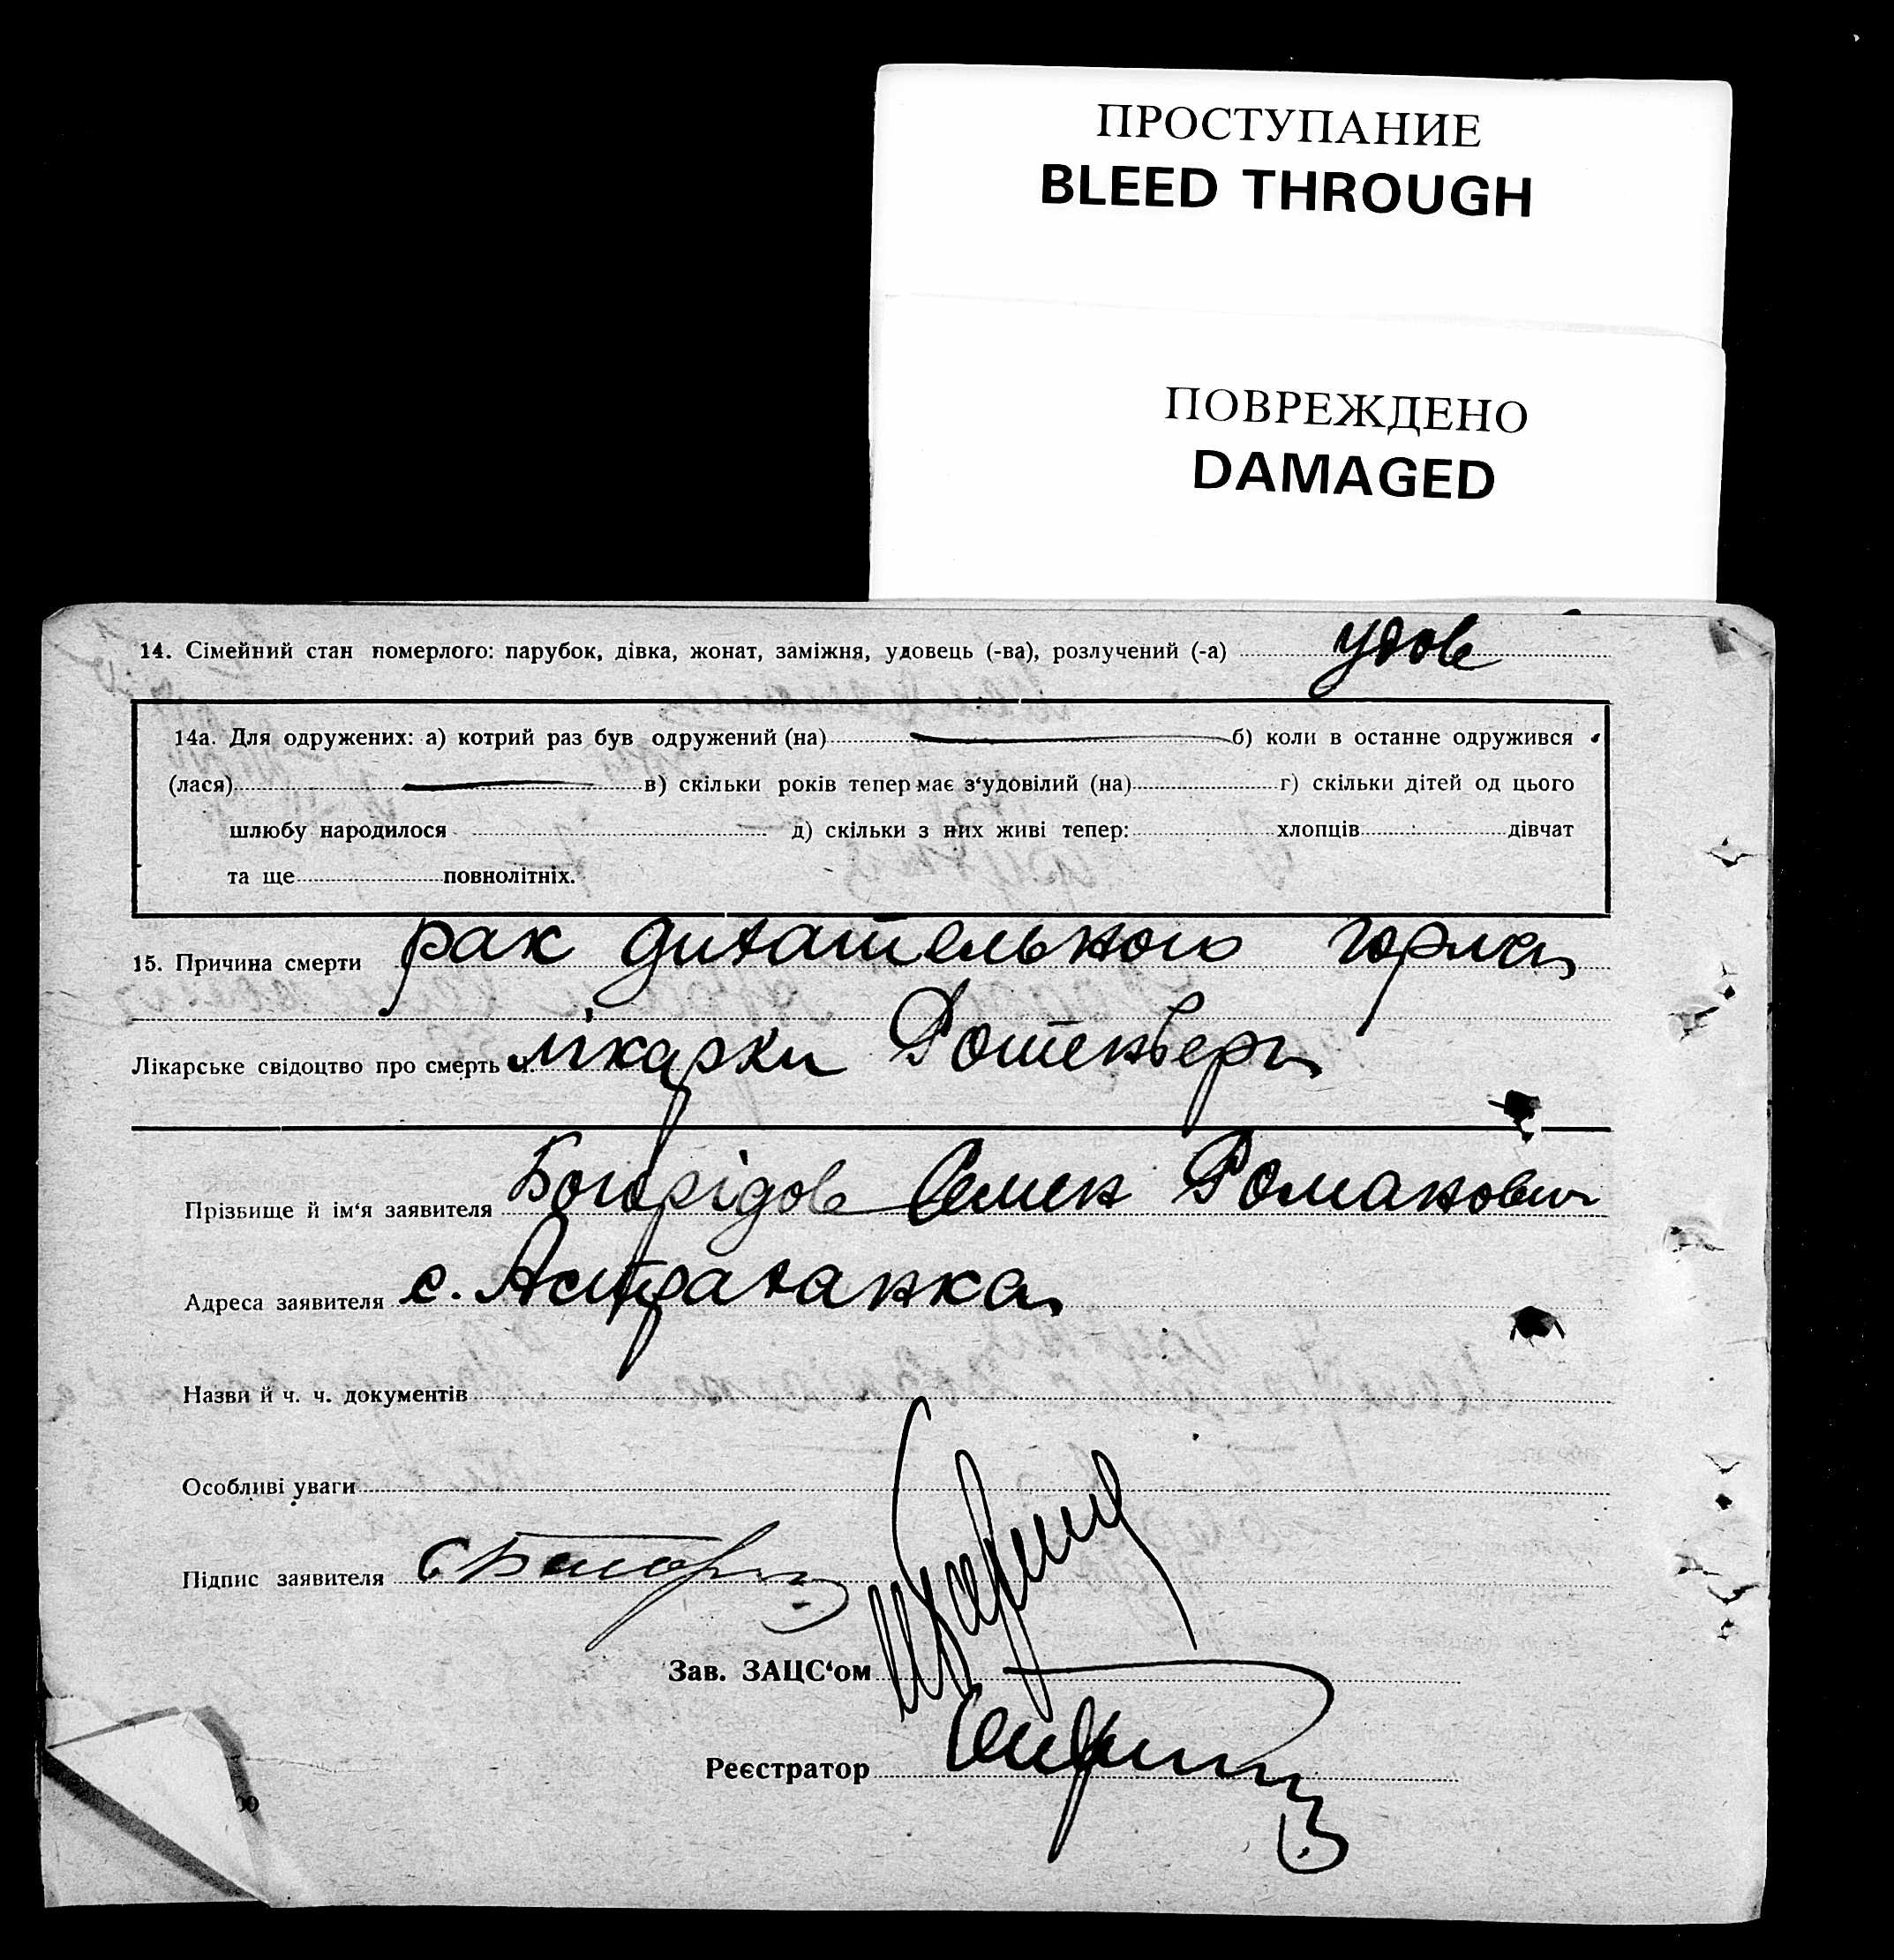 ПРОСТУПАНИЕ
BLEED THROUGH
ПОВРЕЖДЕНО
DAMAGED
14. Сімейний стан померлого: парубок, дівка, жонат, заміжня, удовець (-ва), розлучений (-а) удов
14а. Для одружених: а) котрий раз був одружений (на) б) коли в останне одружився
(лася) в) скільки років тепер має з‘удовілий (на) г) скільки дітей од цього
шлюбу народилося д) скільки з них живі тепер: хлопців дівчат
та ще повнолітніх.
15. Причина смерти рак дихательного горла
Лікарське свідоцтво про смерть лікарки Ротенберг
Прізвище й ім‘я заявителя Семен Романович
Адреса заявителя с. Астраханка
Назви й ч. ч. документів
Особливі уваги
Підпис заявителя
Зав. ЗАЦС‘ом
Реєстратор